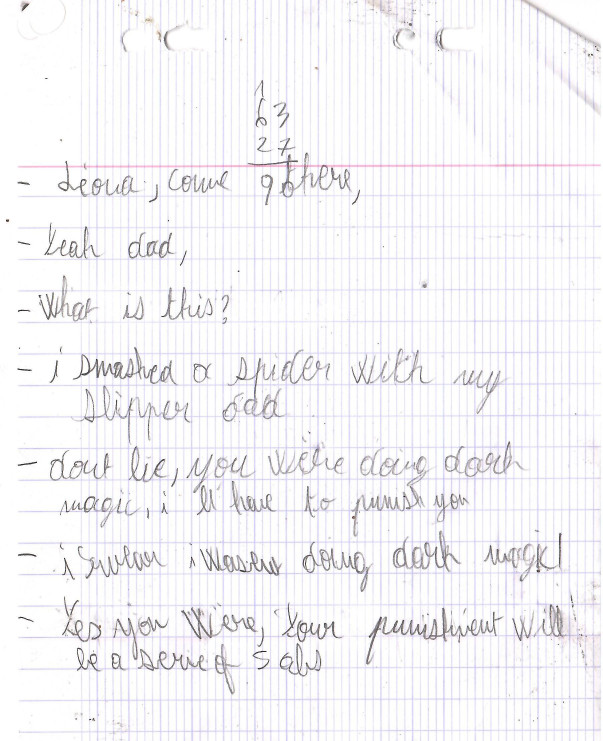 1
63
27
90
- Léona, come here,
- Yeah dad,
- What is this?
- i smashed a spider with my
slipper dad
- dont lie, you were doing dark
magic, i ll have to punish you
- i swear i wasen doing dark magic!
- Yes you were, Your punishment will
be a serie of 5 abs